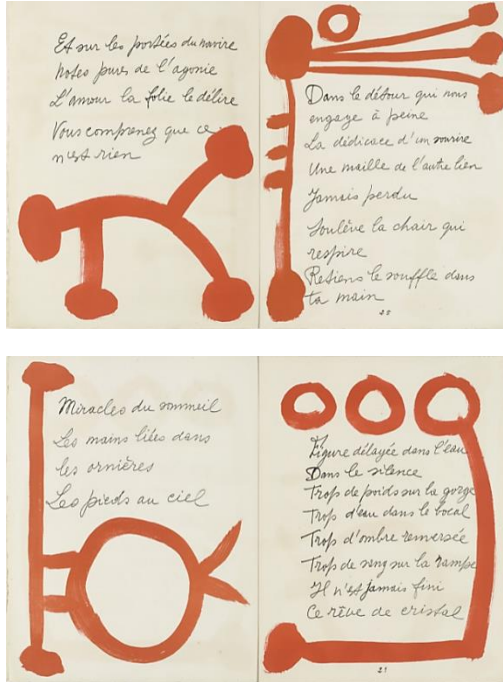 Et sur les portées du navire
Notes pures de l'agonie
L'amour la folie le délire
Vous comprenez que ce
n'est rien
Dans le détour qui nous
engage à peine
La dédicace d'un sourire
Une maille de l'autre lien
Jamais perdu
Soulève la chair qui
respire
Retiens le souffle dans
ta main
Miracles du sommeil
Les mains liées dans
les ornières
Les pieds au ciel
Figure délayée dans l'eau
Dans le silence
Trop de poids sur la gorge
Trop d'eau dans le bocal
Trop d'ombre renversée
Trop de sang sur la rampe
Il n'est jamais fini
Ce rêve de cristal
21